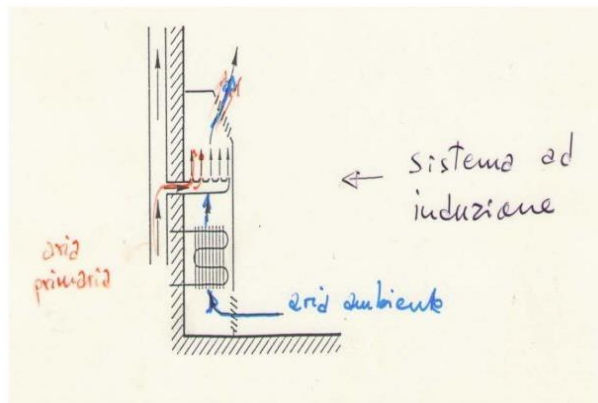 sistema ad
induzione
aria
primaria
aria ambiente